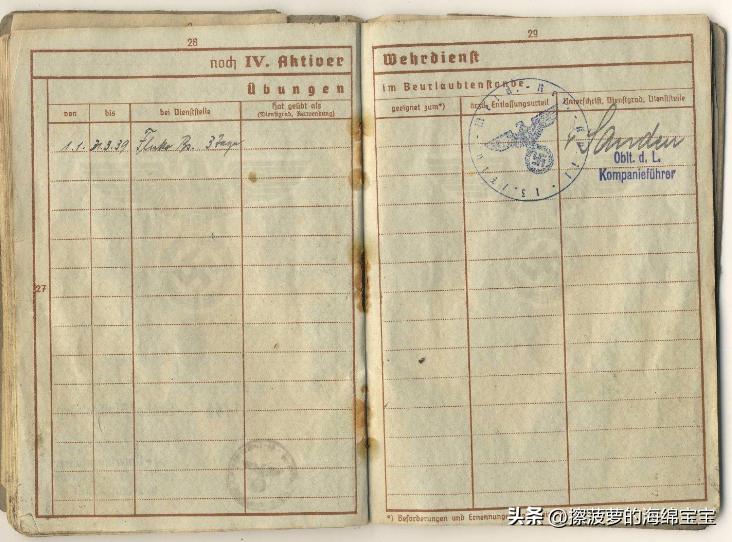 28
noch IV. Aktiver
Übungen
von
bis
bei Dienststelle
Hat geübt als
(Dienstgrad, Verwendung)
1.1.
31.3.39
3 Tage
27
29
Wehrdienst
im Beurlaubtenstande
geeignet zum*)
bzw. Entlassungsurteil
Unterschrift, Dienstgrad, Dienststelle
Sanden
Oblt. d. L.
Kompanieführer
*) Beförderungen und Ernennungen
头条 @擦菠萝的海绵宝宝